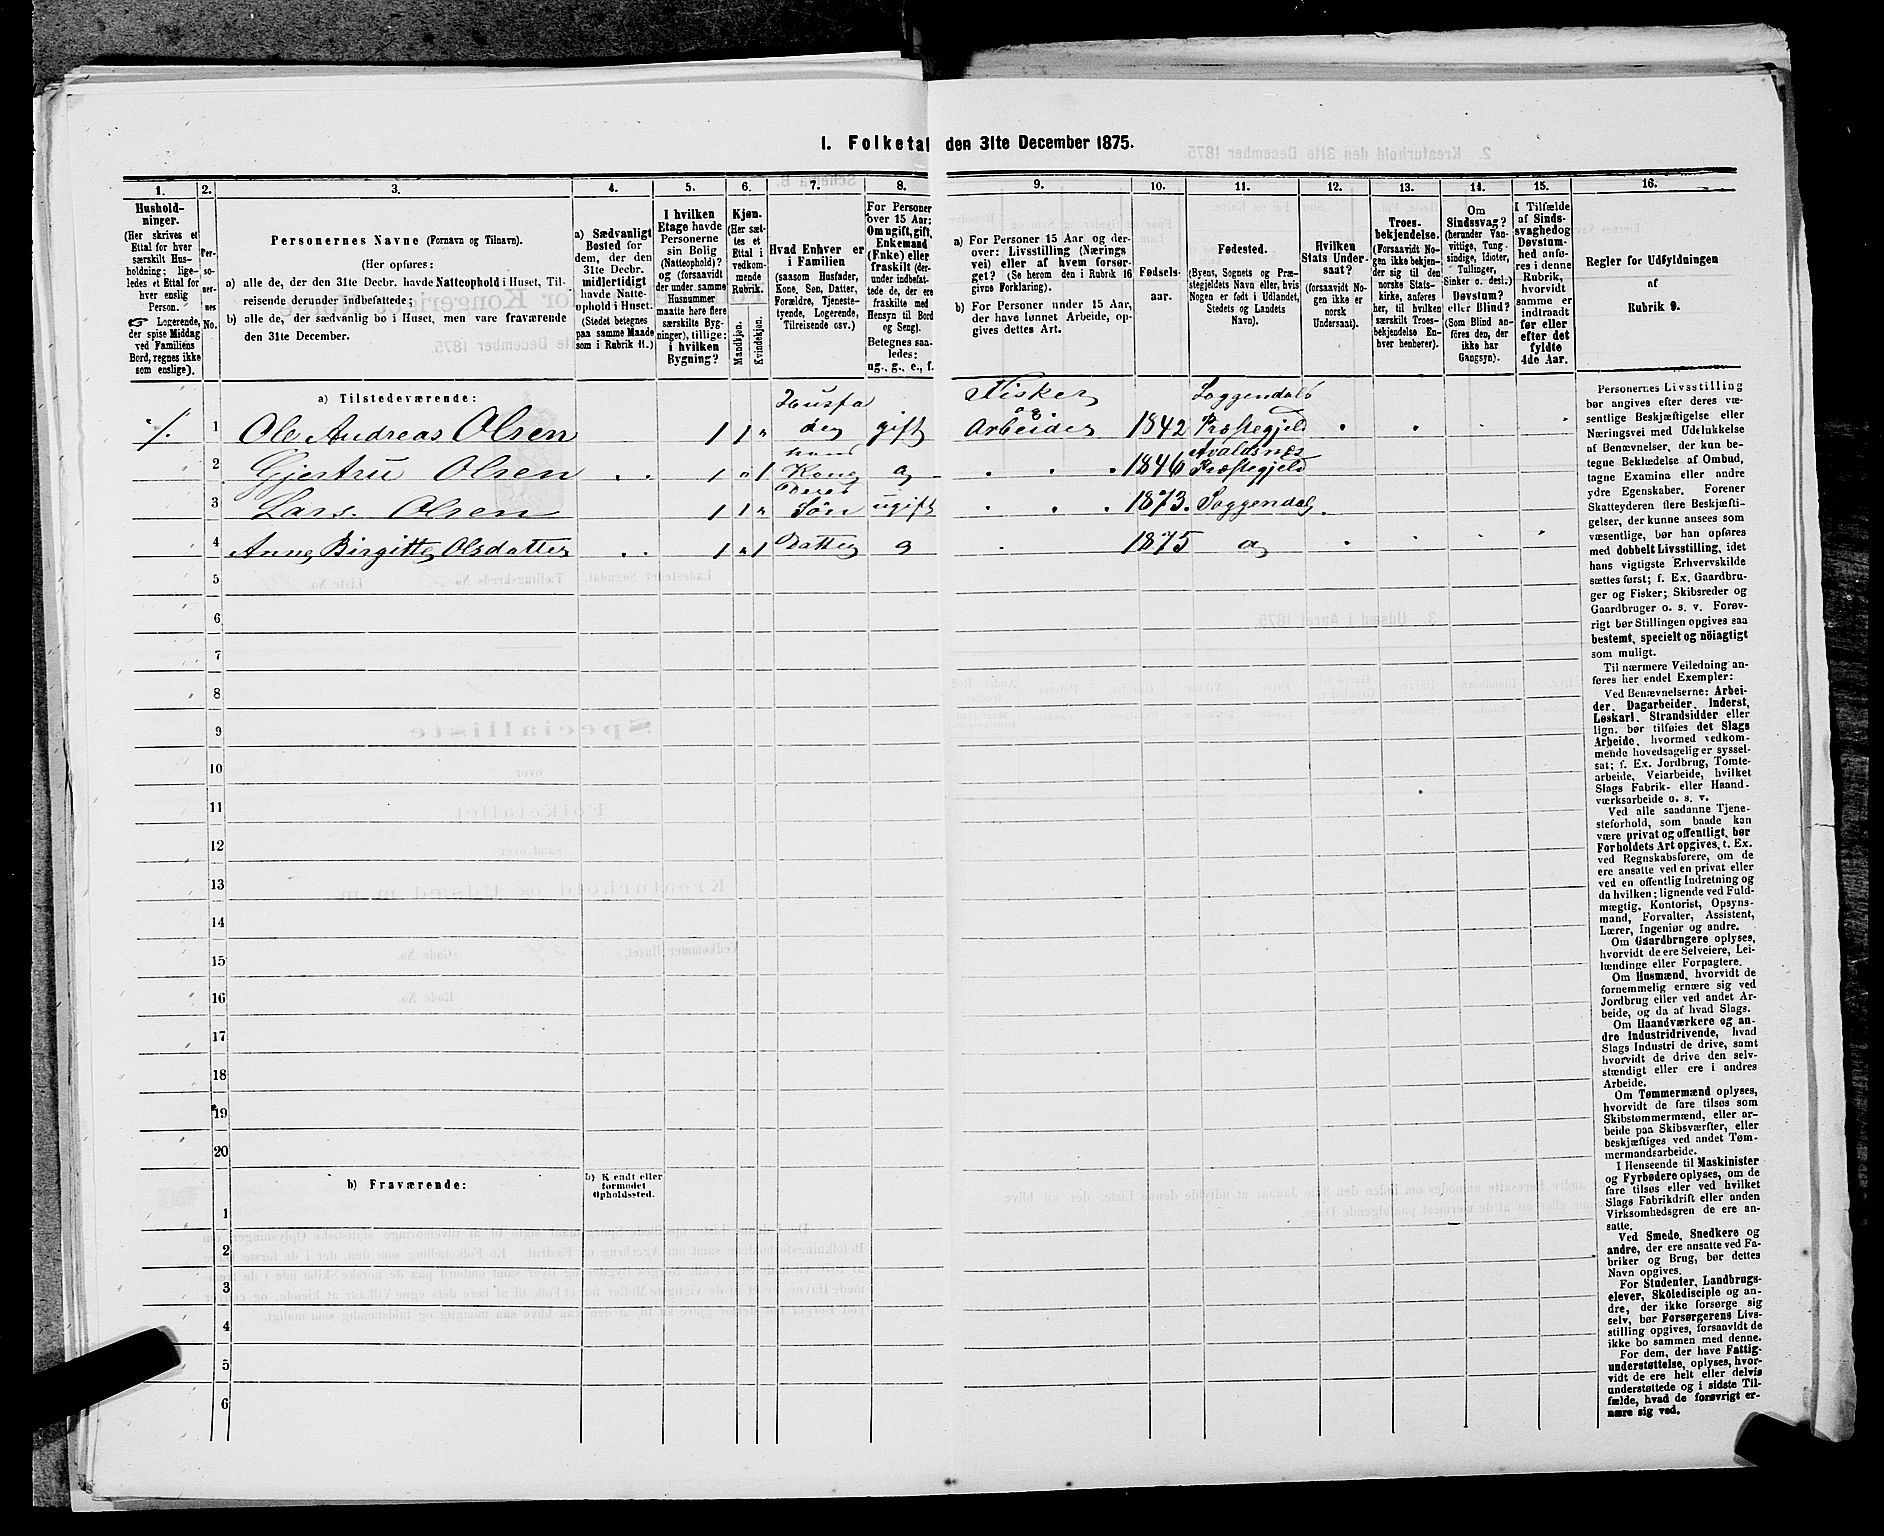 1. Folketal den 31te December 1875.
1. 2. 3. 4. 5. 6. 7. 8. 9. 10. 11. 12. 13. 14. 15. 16.
Hushold-
ninger.
(Her skrives et
Ettal for hver
særskilt Hus-
holdning; lige-
ledes et Ettal for
hver enslig
Person.
☞ Logerende,
der spise Middag
ved Familiens
Bord, regnes ikke
som enslige).
Per-
so-
ner-
nes
No.
Personernes Navne (Fornavn og Tilnavn).
(Her opføres:
a) alle de, der den 31te Decbr. havde Natteophold i Huset, Til-
reisende derunder indbefattede;
b) alle de, der sædvanlig bo i Huset, men vare fraværende
den 31te December.
a) Sædvanligt
Bosted for
dem, der den
31te Decbr.
midlertidigt
havde Natte-
ophold i Huset.
(Stedet betegnes
paa samme Maade
som i Rubrik 11.)
I hvilken
Etage havde
Personerne
sin Bolig
(Natteophold)?
og (forsaavidt
der under samme
Husnummer
maatte høre flere
særskilte Byg-
ninger), tillige:
i hvilken
Bygning?
Kjøn.
(Her sæt-
tes et
Ettal i
vedkom-
mende
Rubrik.
Mandkjøn.
Kvindekjøn.
Hvad Enhver er
i Familien
(saasom Husfader,
Kone, Søn, Datter,
Forældre, Tjeneste-
tyende, Logerende,
Tilreisende osv.)
For Personer
over 15 Aar:
Om ugift, gift,
Enkemand
(Enke) eller
fraskilt (der-
under indbefat-
tede de, der ere
fraskilte med
Hensyn til Bord
og Seng).
Betegnes saa-
ledes:
ug., g., e., f.
a) For Personer 15 Aar og der-
over: Livsstilling (Nærings
vei) eller af hvem forsør-
get? (Se herom den i Rubrik 16
givne Forklaring).
b) For Personer under 15 Aar,
der have lønnet Arbeide, op-
gives dettes Art.
Fødsels-
aar.
Fødested.
(Byens, Sognets og Præ-
stegjeldets Navn eller, hvis
Nogen er født i Udlandet,
Stedets og Landets
Navn).
Hvilken
Stats Under-
saat?
(forsaavidt No-
gen ikke er
norsk
Undersaat).
Troes-
bekjendelse.
(Forsaavidt No-
gen ikke bekjen-
der sig til den
norske Stats-
kirke, anføres
her, til hvilken
særskilt Troes-
bekjendelse En-
hver henhører).
Om
Sindssvag?
(herunder Van-
vittige, Tung-
sindige, Idioter,
Tullinger,
Sinker o. desl.)
Døvstum?
eller Blind?
(Som Blind an-
føres den, der
ikke har
Gangsyn).
I Tilfælde
af Sinds-
svaghed og
Døvstum-
hed anfø-
res i denne
Rubrik,
hvorvidt
samme er
indtraadt
før eller
efter det
fyldte
4de Aar.
Regler for Udfyldningen
af
Rubrik 9.
a) Tilstedeværende:
1. 1 Ole Andreas Olsen 1 1 " Husfader gift Fisker og Arbeider 1842 Soggendals Præstegjeld
2 Gjertru Olsen 1 " 1 hans Kone g 1846 Avaldsnes Præstegjeld
3 Lars Olsen 1 1 " deres Søn ugift 1873. Soggendal
4 Anne Birgitte Olsdatter 1 " 1 Datter g 1875 g
5
6
7
8
9
10
11
12
13
14
15
16
17
18
19
20
b) Fraværende:
b) Kjendt eller
formodet
Opholdssted.
1
2
3
4
5
6
Personernes Livsstilling
bør angives efter deres væ-
sentlige Beskjæftigelse eller
Næringsvei med Udelukkelse
af Benævnelser, der kun be-
tegne Beklædelse af Ombud,
tagne Examina eller andre
ydre Egenskaber. Forener
Skatteyderen flere Beskjæfti-
gelser, der kunne ansees som
væsentlige, bør han opføres
med dobbelt Livsstilling, idet
hans vigtigste Erhvervskilde
sættes først; f. Ex. Gaardbru-
ger og Fisker; Skibsreder og
Gaardbruger o. s. v. Forøv-
rigt bør Stillingen opgives saa
bestemt, specielt og nöiagtigt
som muligt.
Til nærmere Veiledning an-
føres her endel Exempler:
Ved Benævnelserne: Arbei-
der, Dagarbeider, Inderst,
Løskarl, Strandsidder eller
lign. bør tilføies det Slags
Arbeide, hvormed vedkom-
mende hovedsagelig er syssel-
sat; f. Ex. Jordbrug, Tomte-
arbeide, Veiarbeide, hvilket
Slags Fabrik- eller Haand-
værksarbeide o. s. v.
Ved alle saadanne Tjene-
steforhold, som baade kan
være privat og offentligt, bør
Forholdets Art opgives, t. Ex.
ved Regnskabsførere, om de
ere ansatte ved en privat eller
ved en offentlig Indretning og
da hvilken; lignende ved Fuld-
mægtig, Kontorist, Opsyns-
mand, Forvalter, Assistent,
Lærer, Ingeniør og andre.
Om Gaardbrugere oplyses,
hvorvidt de ere Selveiere, Lei-
lændinge eller Forpagtere.
Om Husmænd, hvorvidt de
fornemmelig ernære sig ved
Jordbrug eller ved andet Ar-
beide, og da af hvad Slags.
Om Haandværkere og an-
dre Industridrivende, hvad
Slags Industri de drive, samt
hvorvidt de drive den selv-
stændigt eller ere i andres
Arbeide.
Om Tømmermænd oplyses,
hvorvidt de fare tilsøs som
Skibstømmermænd, eller ar-
beide paa Skibsværfter, eller
beskjæftiges ved andet Tøm-
mermandsarbeide.
I Henseende til Maskinister
og Fyrbødere oplyses, om de
fare tilsøs eller ved hvilket
Slags Fabrikdrift eller anden
Virksomhedsgren de ere an-
satte.
Ved Smede, Snedkere og
andre, der ere ansatte ved Fa-
briker og Brug, bør dettes
Navn opgives.
For Studenter, Landbrugs-
elever, Skoledisciple og an-
dre, der ikke forsørge sig
selv, bør Forsørgerens Livs-
stilling opgives, forsaavidt de
ikke bo sammen med denne.
For dem, der have Fattig-
understøttelse, oplyses, hvor-
vidt de ere helt eller delvis
understøttede og i sidste Til-
fælde, hvad de forøvrigt er-
nære sig ved.